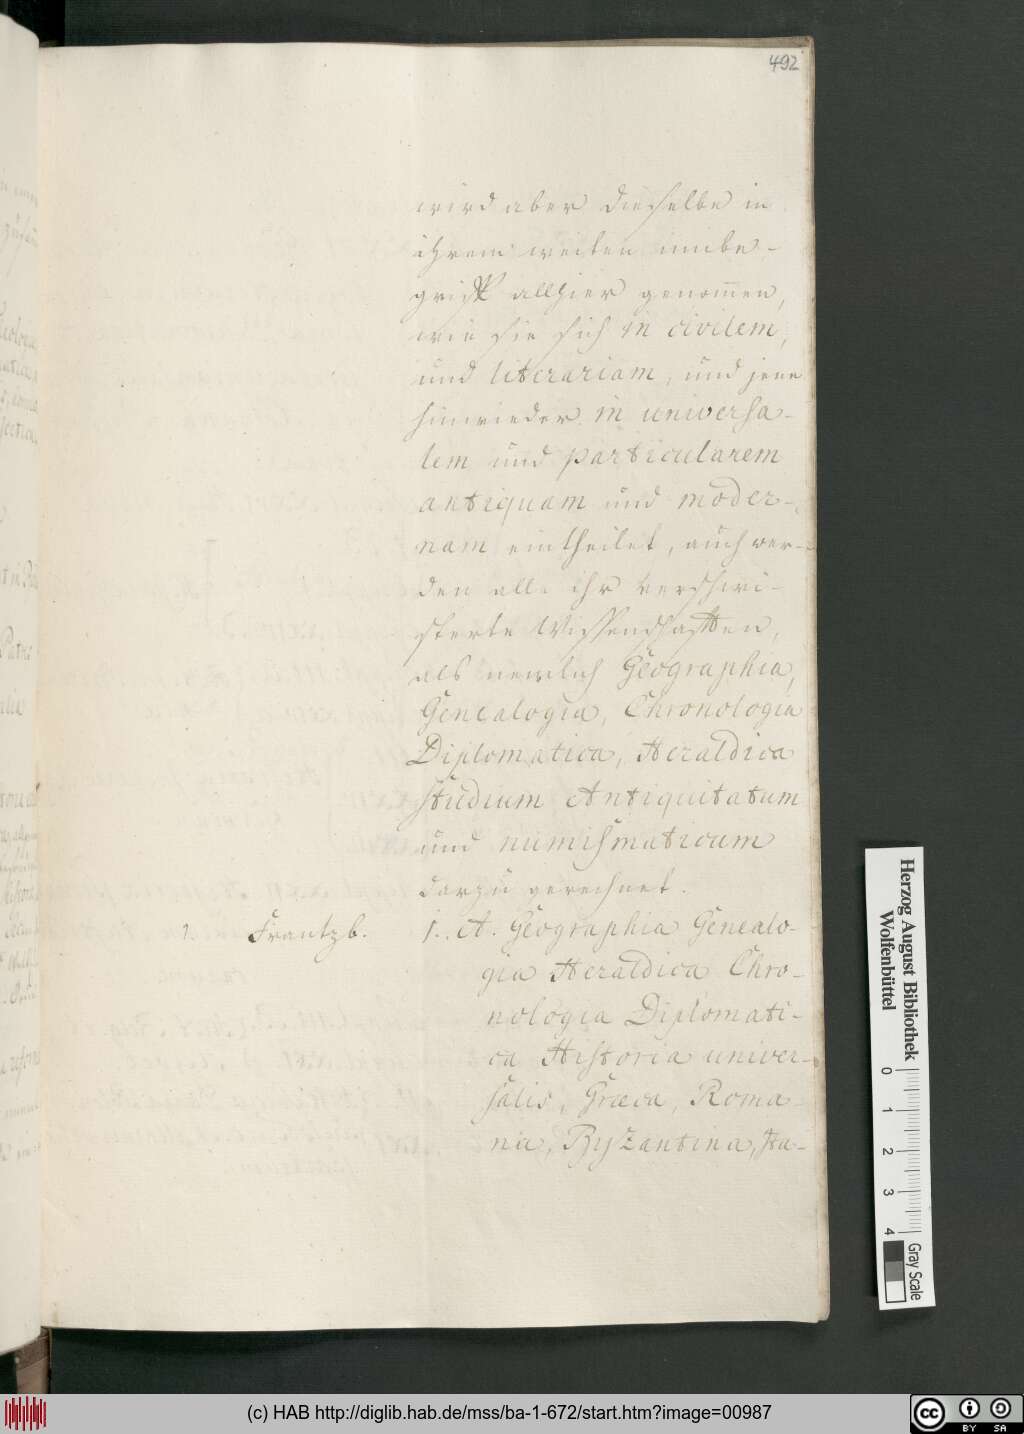 492
wird aber dieselbe in
ihrem weiten innbe-
griff allhier genom̅en,
wie sie sich in civilem,
und literariam, und jene
hinwieder in universa-
lem und particularem
antiquam und moder-
nam eintheilet, auch wer-
den alle ihr verschwi-
sterte Wissenschafften,
als nemlich Geographia,
Genealogia, Chronologia
Diplomatica, Heraldica
studium Antiquitatum
und numismaticum
darzu gerechnet.
1. Frantzb. 1. A. Geographia Genealo-
gia Heraldica Chro-
nologia Diplomati-
ca Historia univer-
salis, Græca, Roma-
na, Byzantina, Ita-
Herzog August Bibliothek
Wolfenbüttel
0 1 2 3 4
Gray Scale
(c) HAB http://diglib.hab.de/mss/ba-1-672/start.htm?image=00987
cc BY SA